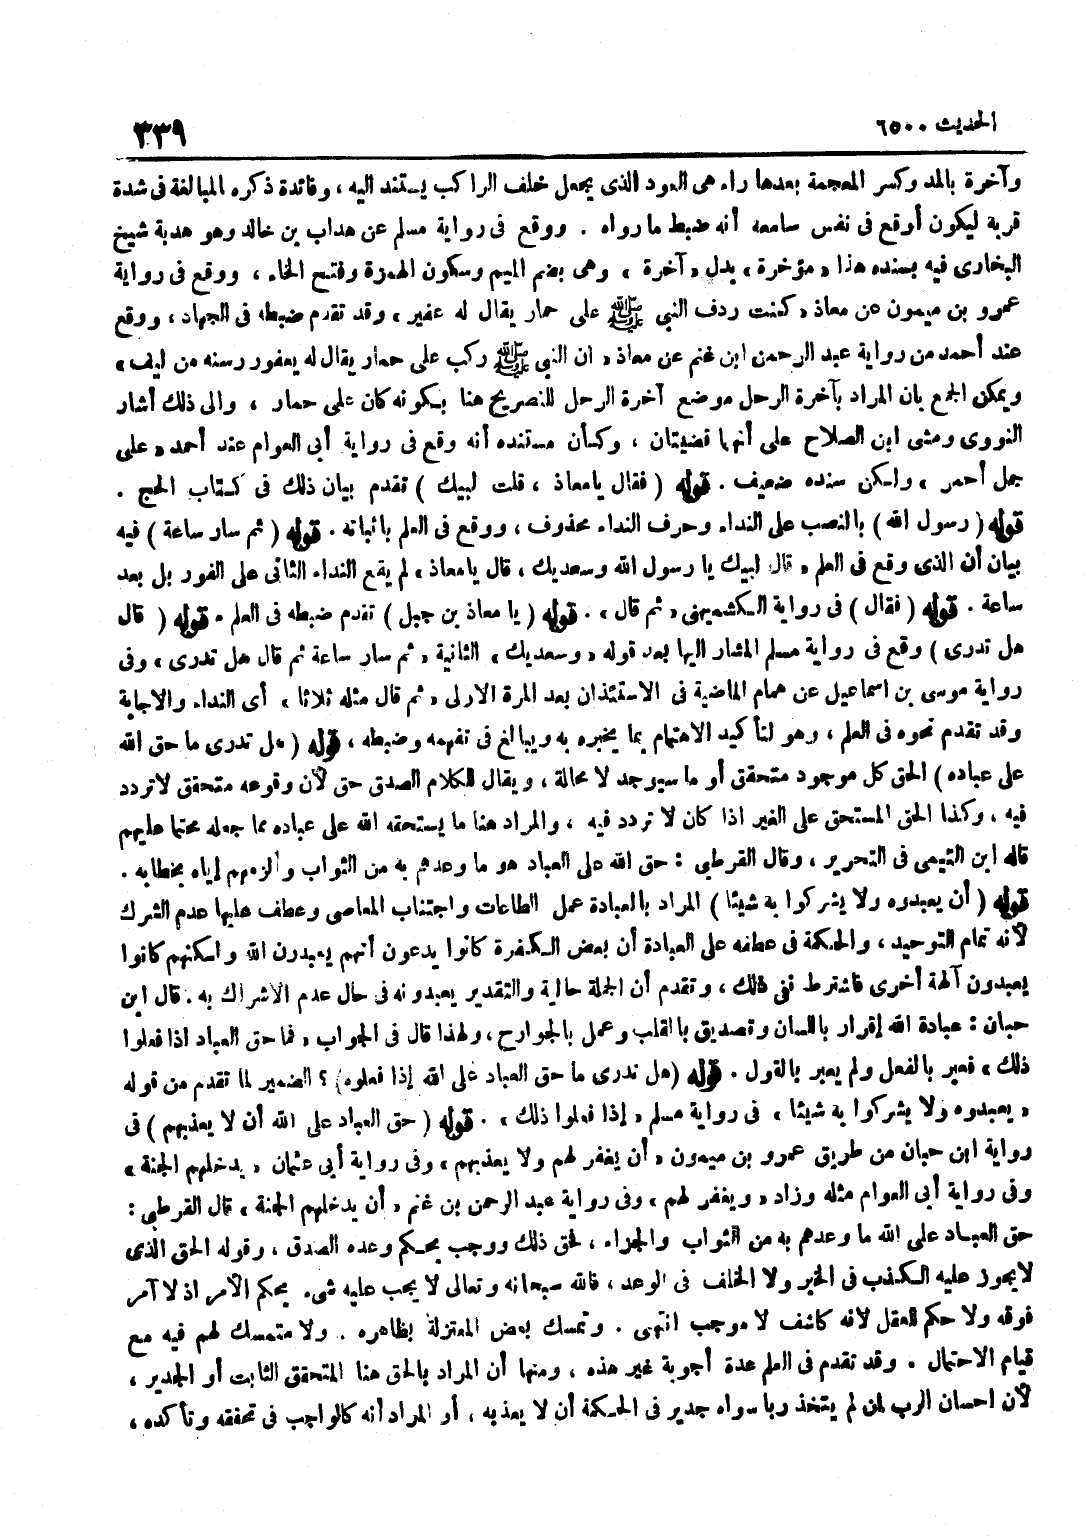 الحديث ٦٥٠٠
٣٣٩
وآخرة بالمد وكسر المعجمة بعدها راء هى العود الذى يجعل خلف الراكب يستند اليه ، وفائدة ذكره المبالغة فى شدة
قربه ليكون أوقع فى نفس سامعه أنه ضبط ما رواه . ووقع فى رواية مسلم عن هداب بن خالد وهو هدبة شيخ
البخارى فيه بسنده هذا « مؤخرة » بدل « آخرة » وهى بضم الميم وسكون الهمزة وفتح الخاء ، ووقع فى رواية
عمرو بن ميمون عن معاذ « كنت ردف النبي ﷺ على حمار يقال له عفير » وقد تقدم ضبطه فى الجهاد ، ووقع
عند أحمد من رواية عبد الرحمن ابن غنم عن معاذ « ان النبي ﷺ ركب على حمار يقال له يعفور رسنه من ليف »
ويمكن الجمع بان المراد بآخرة الرحل موضع آخرة الرحل للتصريح هنا بكونه كان على حمار ، والى ذلك أشار
النووى ومشى ابن الصلاح على أنهما قضيتان ، وكأن مستنده أنه وقع فى رواية أبى العوام عند أحمد « على
جمل أحمر » ولكن سنده ضعيف . قوله ( فقال يامعاذ ، قلت لبيك ) تقدم بيان ذلك فى كتاب الحج .
قوله ( رسول الله ) بالنصب على النداء وحرف النداء محذوف ، ووقع فى العلم باثباته . قوله ( ثم سار ساعة ) فيه
بيان أن الذى وقع فى العلم « قال لبيك يا رسول الله وسعديك ، قال يامعاذ » لم يقع النداء الثانى على الفور بل بعد
ساعة . قوله ( فقال ) فى رواية الكشميهنى « ثم قال » . قوله ( يا معاذ بن جبل ) تقدم ضبطه فى العلم . قوله ( قال
هل تدرى ) وقع فى رواية مسلم المشار اليها بعد قوله « وسعديك » الثانية « ثم سار ساعة ثم قال هل تدرى » وفى
رواية موسى بن اسماعيل عن همام الماضية فى الاستئذان بعد المرة الاولى « ثم قال مثله ثلاثا » أى النداء والاجابة
وقد تقدم نحوه فى العلم ، وهو لتأكيد الاهتمام بما يخبره به ويبالغ فى تفهمه وضبطه ، قوله ( هل تدرى ما حق الله
على عباده ) الحق كل موجود متحقق أو ما سيوجد لا محالة ، ويقال للكلام الصدق حق لأن وقوعه متحقق لاتردد
فيه ، وكذا الحق المستحق على الغير اذا كان لا تردد فيه ، والمراد هنا ما يستحقه الله على عباده مما جعله محتما عليهم
قاله ابن التيمى فى التحرير ، وقال القرطبى : حق الله على العباد هو ما وعدهم به من الثواب وألزمهم إياه بخطابه .
قوله ( أن يعبدوه ولا يشركوا به شيئا ) المراد بالعبادة عمل الطاعات واجتناب المعاصى وعطف عليها عدم الشرك
لأنه تمام التوحيد ، والحكمة فى عطفه على العبادة أن بعض الكفرة كانوا يدعون أنهم يعبدون الله ولكنهم كانوا
يعبدون آلهة أخرى فاشترط نفى ذلك ، وتقدم أن الجملة حالية والتقدير يعبدونه فى حال عدم الاشراك به . قال ابن
حبان : عبادة الله إقرار باللسان وتصديق بالقلب وعمل بالجوارح ، ولهذا قال فى الجواب « فما حق العباد اذا فعلوا
ذلك » فعبر بالفعل ولم يعبر بالقول . قوله (هل تدرى ما حق العباد على الله إذا فعلوه) ؟ الضمير لما تقدم من قوله
« يعبدوه ولا يشركوا به شيئا » فى رواية مسلم « إذا فعلوا ذلك » . قوله ( حق العباد على الله أن لا يعذبهم ) فى
رواية ابن حبان من طريق عمرو بن ميمون « أن يغفر لهم ولا يعذبهم » وفى رواية أبى عثمان « يدخلهم الجنة »
وفى رواية أبى العوام مثله وزاد « ويغفر لهم » وفى رواية عبد الرحمن بن غنم « أن يدخلهم الجنة » قال القرطبى :
حق العباد على الله ما وعدهم به من الثواب والجزاء ، فحق ذلك ووجب بحكم وعده الصدق ، وقوله الحق الذى
لايجوز عليه الكذب فى الخبر ولا الخلف فى الوعد ، فالله سبحانه وتعالى لا يجب عليه شىء بحكم الأمر اذ لا آمر
فوقه ولا حكم للعقل لانه كاشف لا موجب انتهى . وتمسك بعض المعتزلة بظاهره . ولا متمسك لهم فيه مع
قيام الاحتمال . وقد تقدم فى العلم عدة أجوبة غير هذه ، ومنها أن المراد بالحق هنا المتحقق الثابت أو الجدير ،
لأن احسان الرب لمن لم يتخذ ربا سواه جدير فى الحكمة أن لا يعذبه ، أو المراد أنه كالواجب فى تحققه وتأكده ،